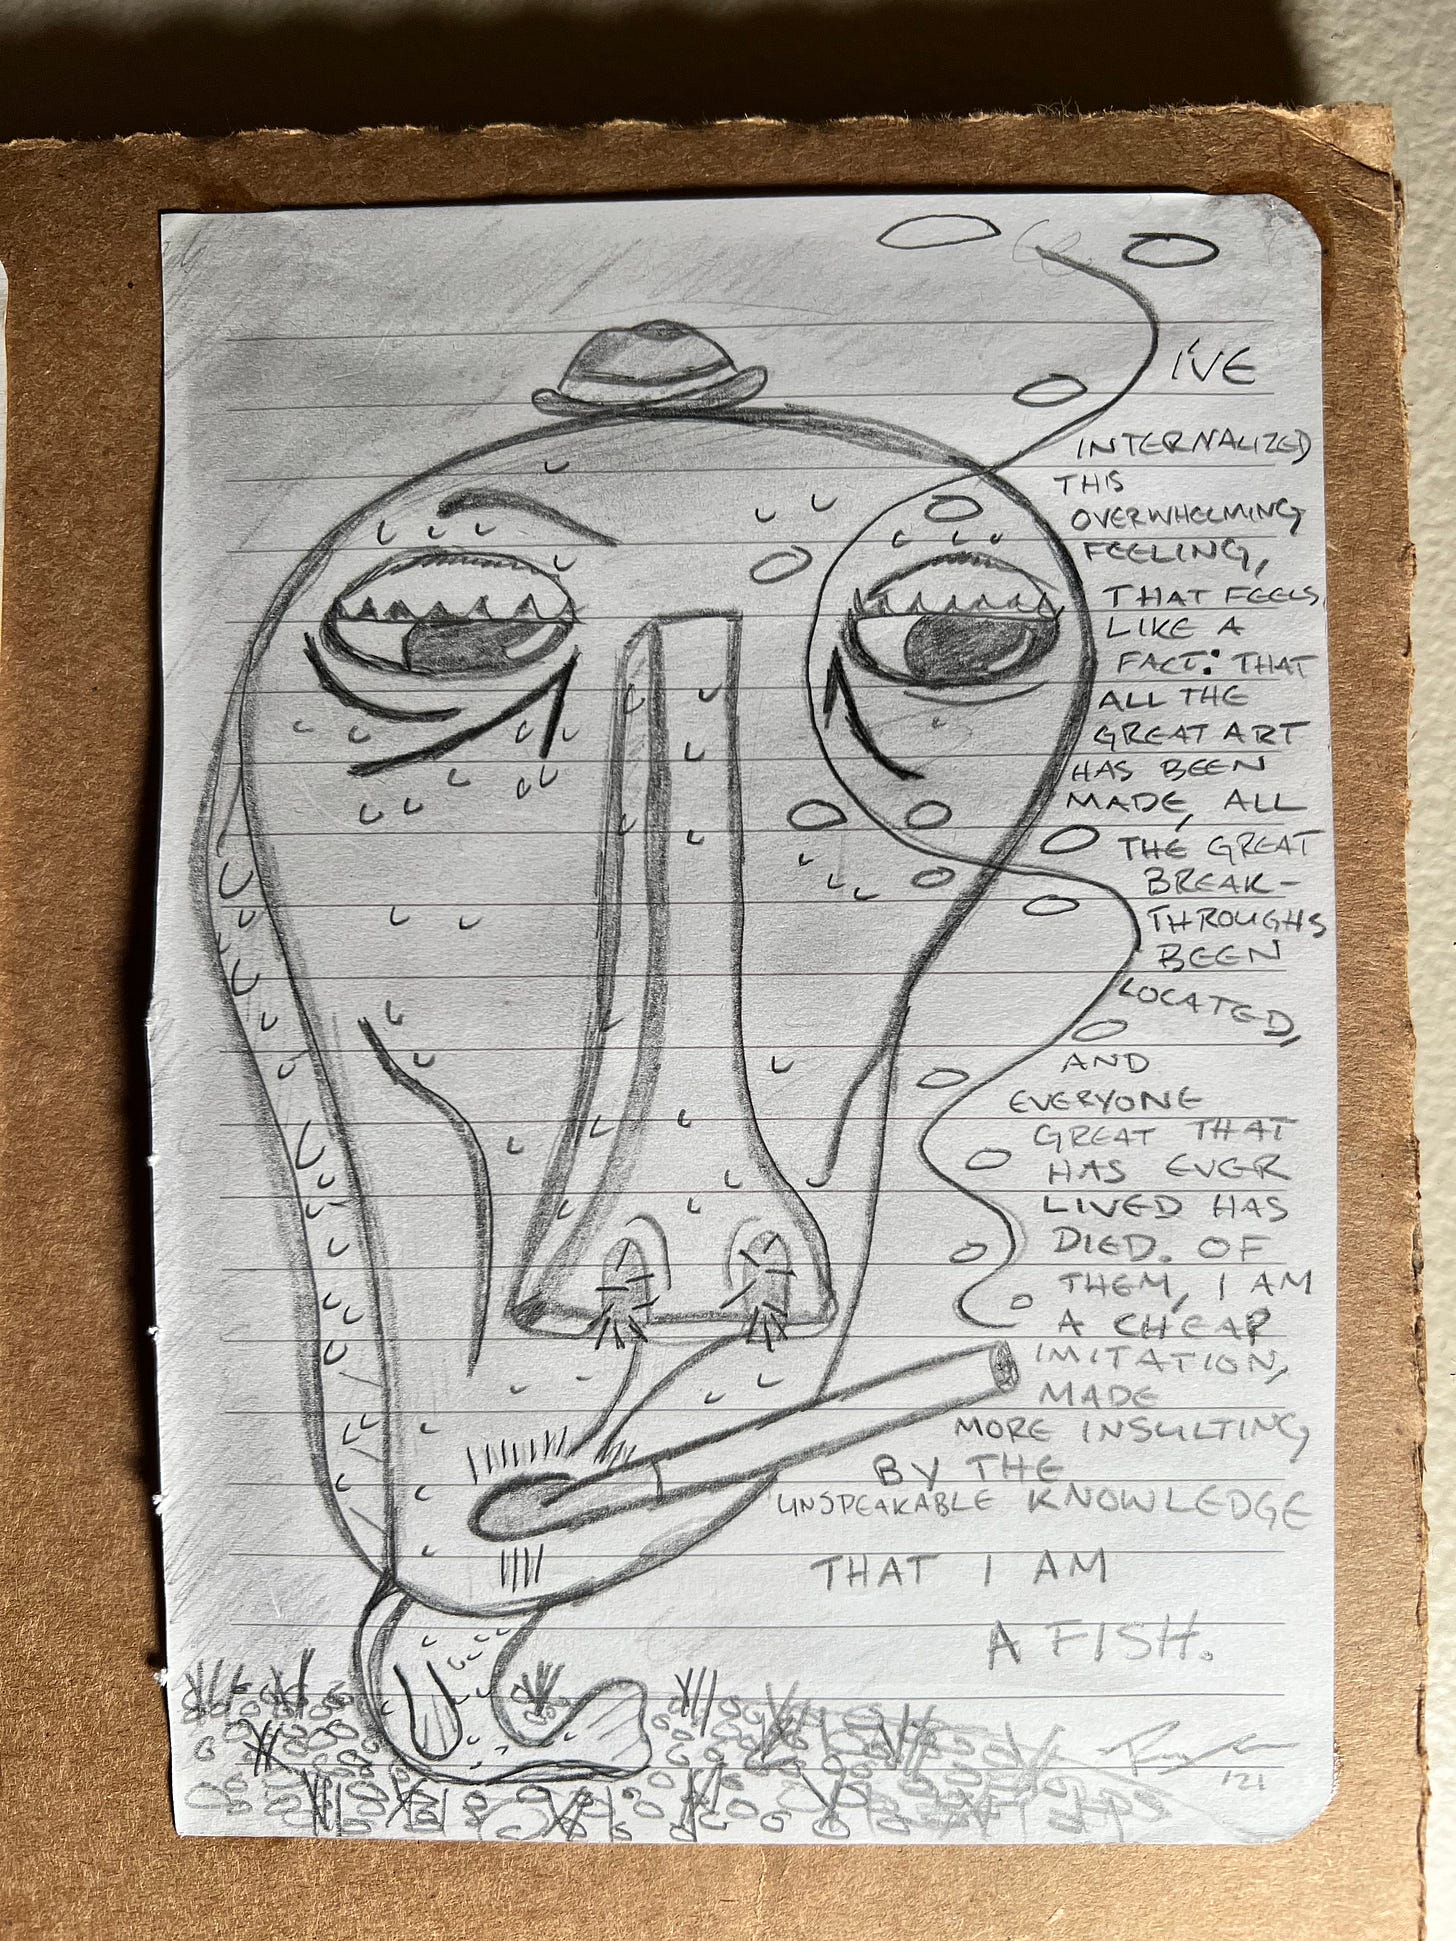 I'VE
INTERNALIZED
THIS
OVERWHELMING
FEELING,
THAT FEELS
LIKE A
FACT: THAT
ALL THE
GREAT ART
HAS BEEN
MADE, ALL
THE GREAT
BREAK-
THROUGHS
BEEN
LOCATED,
AND
EVERYONE
GREAT THAT
HAS EVER
LIVED HAS
DIED. OF
THEM, I AM
A CHEAP
IMITATION,
MADE
MORE INSULTING,
BY THE
UNSPEAKABLE KNOWLEDGE
THAT I AM
A FISH.
'21